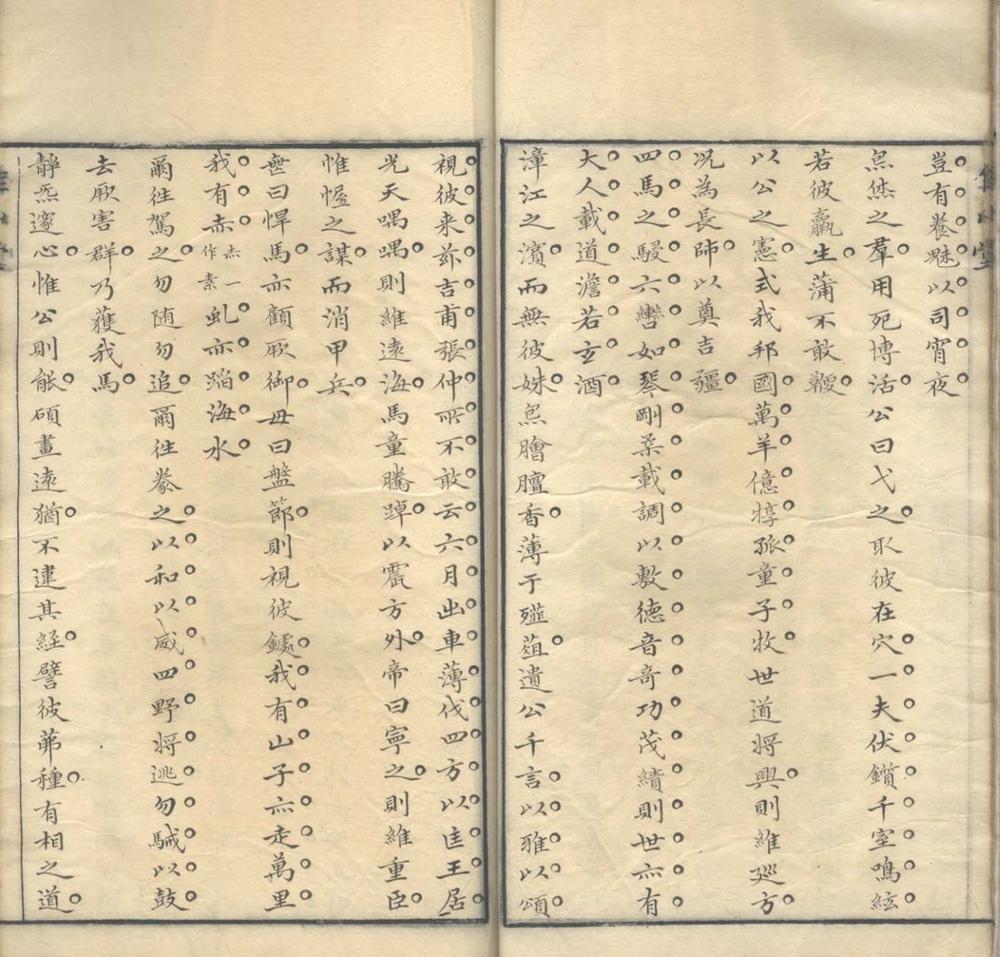 豈有養魅以司宵夜
炰烋之羣用死博活公曰弋之取彼在穴一夫伏鑕千室鳴絃
若彼羸生蒲不敢鞭
以公之憲式我邦國萬羊億犉孤童子牧世道將興則維巡方
况為長師以奠吉疆
四馬之騣六轡如琴剛柔載調以敷德音奇功茂績則世亦有
大人載道澹若玄酒
漳江之濱而無彼姝炰膾膻香薄于殛菹遺公千言以雅以頌
視彼来茲吉甫張仲所不敢云六月出車薄伐四方以匡王居
光天喁喁則維遠海馬童騰踔以震方外帝曰寧之則維重臣
惟幄之謀而消甲兵
毋曰悍馬亦顧厥御毋曰盤節則視彼鐻我有山子亦走萬里
我有赤赤一作素虬亦蹈海水
爾徃駕之勿随勿追爾徃豢之以和以威四野將逃勿駴以鼓
去厥害群乃獲我馬
靜炁邃心惟公則能碩畫遠猶不逮其經譬彼茀種有相之道